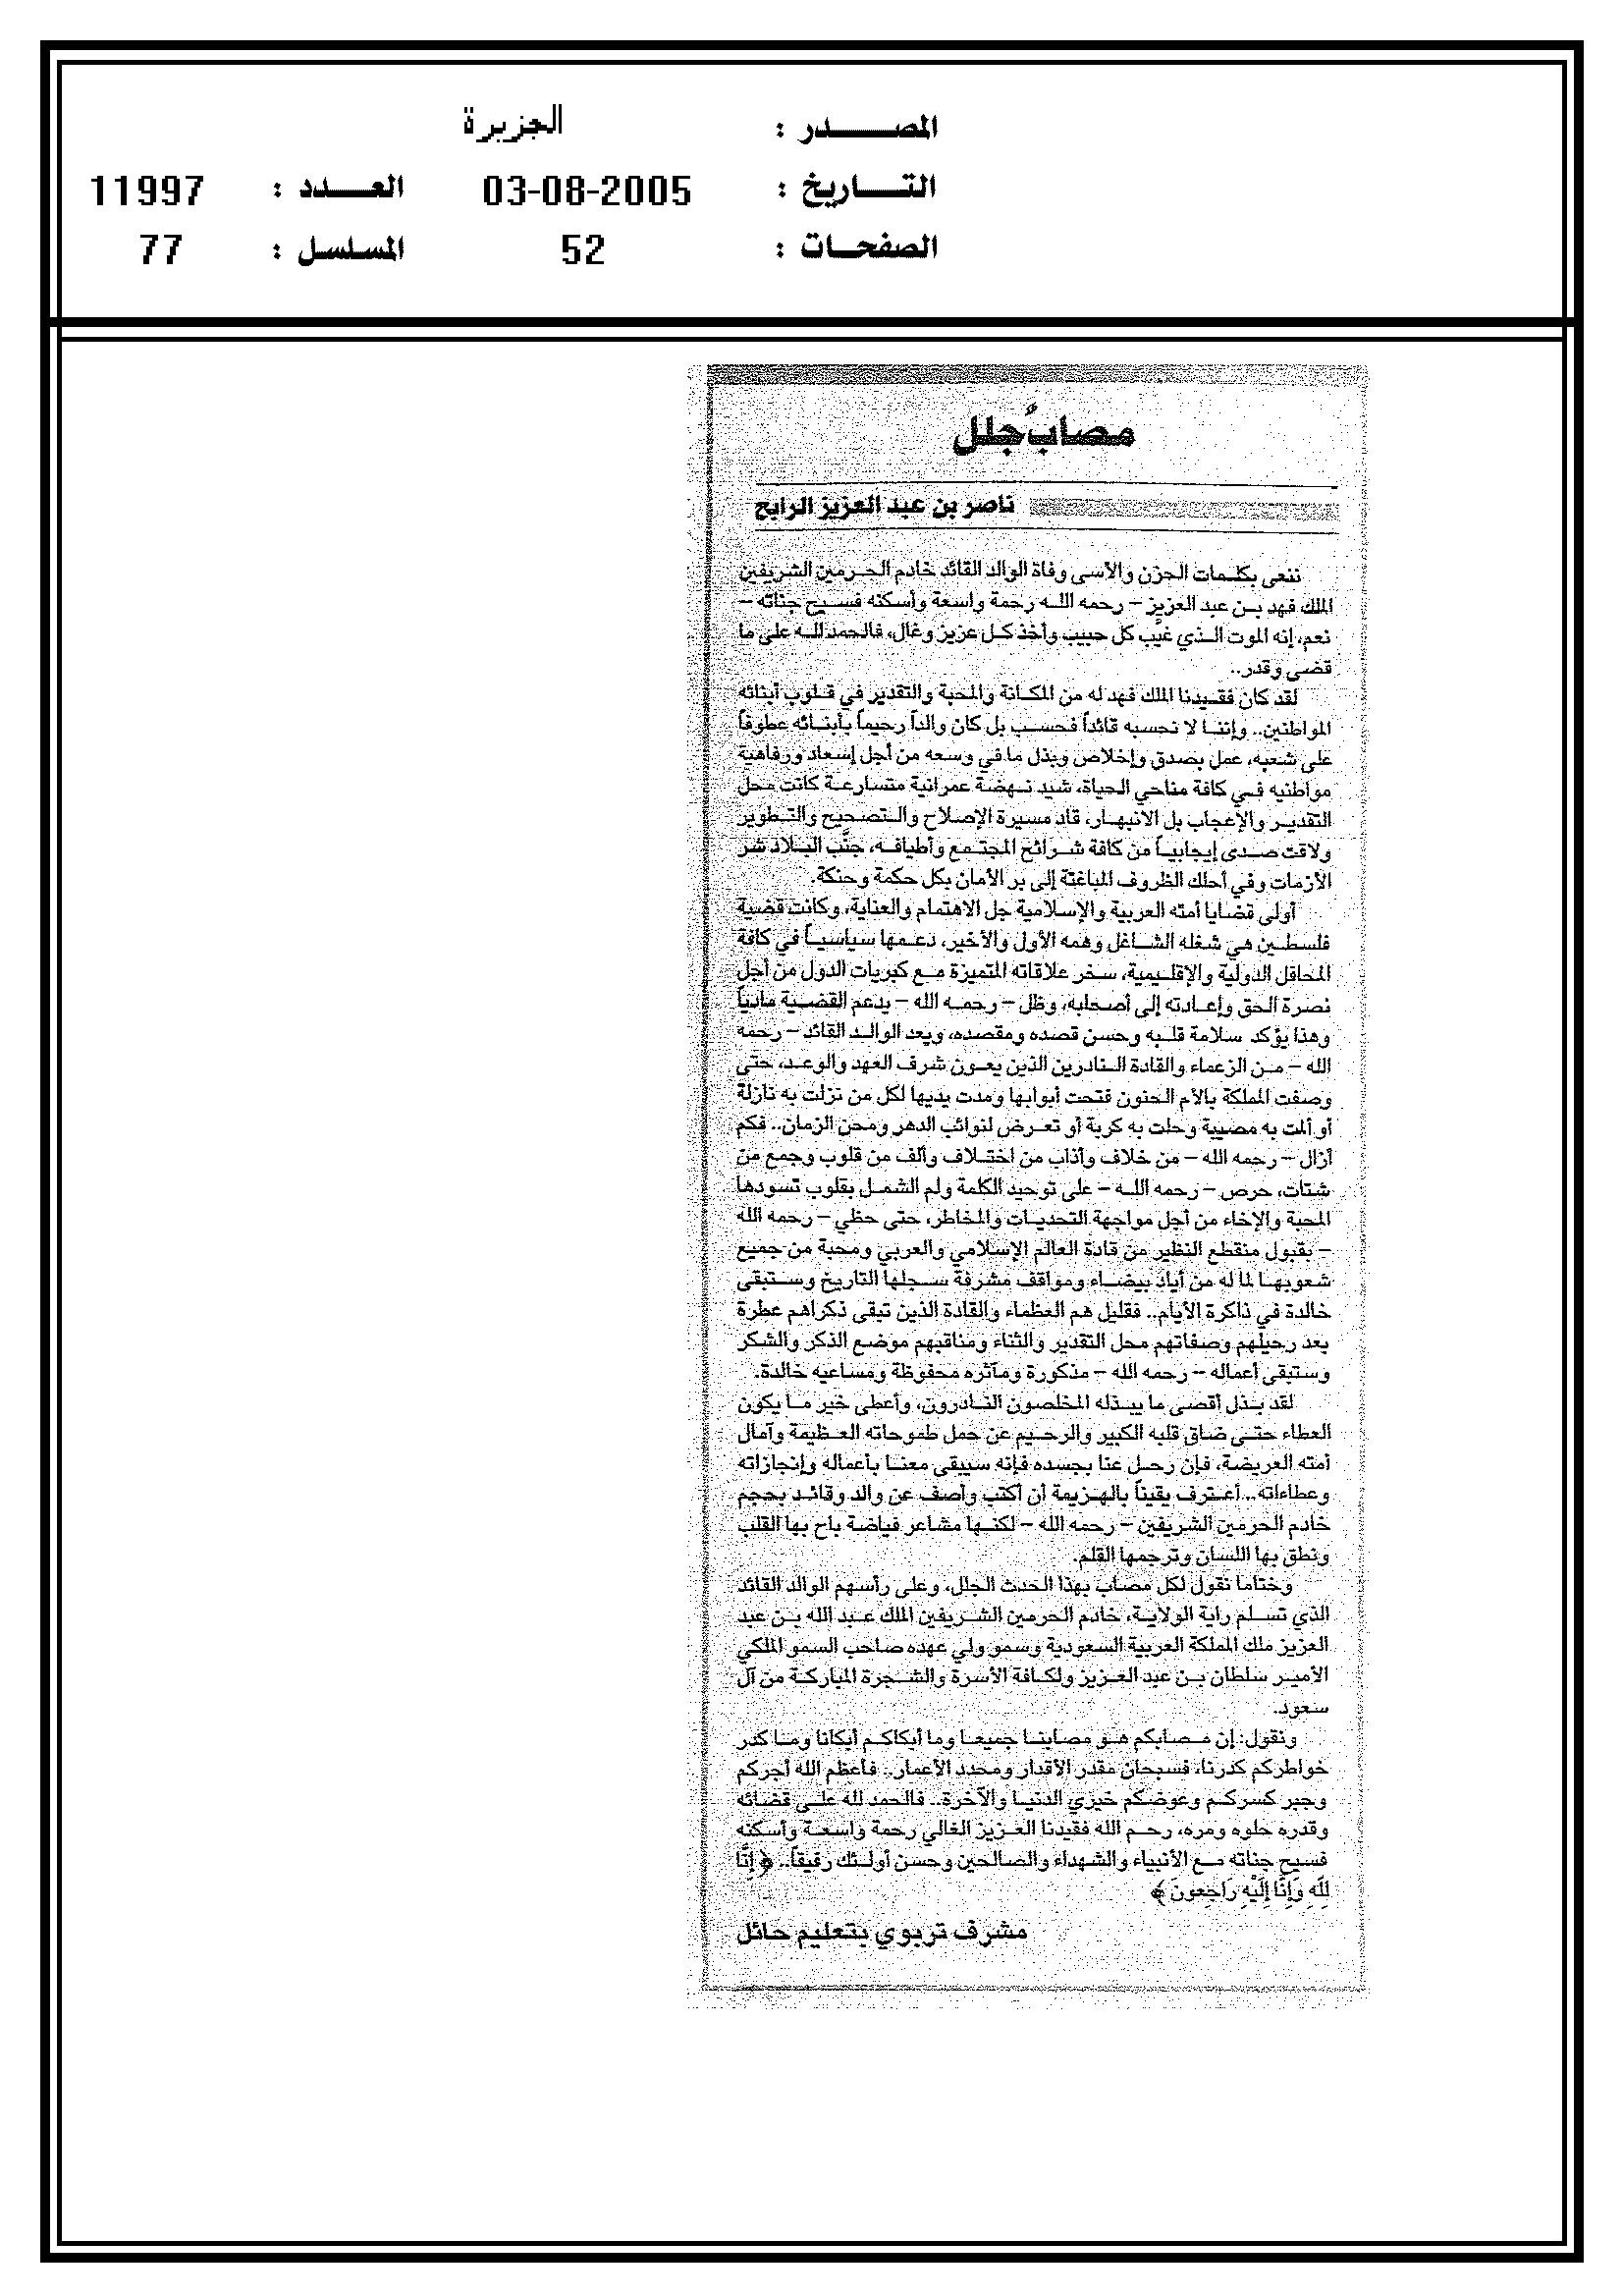 المصدر : الجزيرة
التاريخ : 03-08-2005 العدد : 11997
الصفحات : 52 المسلسل : 77
مصابٌ جلل
ناصر بن عبد العزيز الرابح
ننعى بكلمات الحزن والأسى وفاة الوالد القائد خادم الحرمين الشريفين
الملك فهد بن عبد العزيز – رحمه الله رحمة واسعة وأسكنه فسيح جناته –
نعم، إنه الموت الذي غيب كل حبيب وأخذ كل عزيز وغال، فالحمد لله على ما
قضى وقدر..
لقد كان فقيدنا الملك فهد له من المكانة والمحبة والتقدير في قلوب أبنائه
المواطنين.. وإننا لا نحسبه قائداً فحسب بل كان والداً رحيماً بأبنائه عطوفاً
على شعبه، عمل بصدق وإخلاص وبذل ما في وسعه من أجل إسعاد ورفاهية
مواطنيه في كافة مناحي الحياة، شيد نهضة عمرانية متسارعة كانت محل
التقدير والإعجاب بل الانبهار، قاد مسيرة الإصلاح والتصحيح والتطوير
ولاقت صدى إيجابياً من كافة شرائح المجتمع وأطيافه، جنَّب البلاد شر
الأزمات وفي أحلك الظروف المباغتة إلى بر الأمان بكل حكمة وحنكة.
أولى قضايا أمته العربية والإسلامية جل الاهتمام والعناية، وكانت قضية
فلسطين هي شغله الشاغل وهمه الأول والأخير، دعمها سياسياً في كافة
المحافل الدولية والإقليمية، سخر علاقاته المتميزة مع كبريات الدول من أجل
نصرة الحق وإعادته إلى أصحابه، وظل – رحمه الله – يدعم القضية مادياً
وهذا يؤكد سلامة قلبه وحسن قصده ومقصده، ويعد الوالد القائد – رحمه
الله – من الزعماء والقادة النادرين الذين يعون شرف العهد والوعد، حتى
وصفت المملكة بالأم الحنون فتحت أبوابها ومدت يديها لكل من نزلت به نازلة
أو ألمت به مصيبة وحلت به كربة أو تعرض لنوائب الدهر ومحن الزمان.. فكم
أزال – رحمه الله – من خلاف وأذاب من اختلاف وألف من قلوب وجمع من
شتات، حرص – رحمه الله – على توحيد الكلمة ولم الشمل بقلوب تسودها
المحبة والإخاء من أجل مواجهة التحديات والمخاطر، حتى حظي – رحمه الله
– بقبول منقطع النظير من قادة العالم الإسلامي والعربي ومحبة من جميع
شعوبها لما له من أياد بيضاء ومواقف مشرفة سجلها التاريخ وستبقى
خالدة في ذاكرة الأيام.. فقليل هم العظماء والقادة الذين تبقى ذكراهم عطرة
بعد رحيلهم وصفاتهم محل التقدير والثناء ومناقبهم موضع الذكر والشكر
وستبقى أعماله – رحمه الله – مذكورة ومآثره محفوظة ومساعيه خالدة.
لقد بذل أقصى ما يبذله المخلصون النادرون، وأعطى خير ما يكون
العطاء حتى ضاق قلبه الكبير والرحيم عن حمل طموحاته العظيمة وآمال
أمته العريضة، فإن رحل عنا بجسده فإنه سيبقى معنا بأعماله وإنجازاته
وعطاءاته.. أعترف يقيناً بالهزيمة أن أكتب وأصف عن والد وقائد بحجم
خادم الحرمين الشريفين – رحمه الله – لكنها مشاعر فياضة باح بها القلب
ونطق بها اللسان وترجمها القلم.
وختاما نقول لكل مصاب بهذا الحدث الجلل، وعلى رأسهم الوالد القائد
الذي تسلم راية الولاية، خادم الحرمين الشريفين الملك عبد الله بن عبد
العزيز ملك المملكة العربية السعودية وسمو ولي عهده صاحب السمو الملكي
الأمير سلطان بن عبد العزيز ولكافة الأسرة والشجرة المباركة من آل
سعود.
ونقول: إن مصابكم هو مصابنا جميعا وما أبكاكم أبكانا وما كدر
خواطركم كدرنا، فسبحان مقدر الأقدار ومحدد الأعمار.. فأعظم الله أجركم
وجبر كسركم وعوضكم خيري الدنيا والآخرة.. فالحمد لله على قضائه
وقدره حلوه ومره، رحم الله فقيدنا العزيز الغالي رحمة واسعة وأسكنه
فسيح جناته مع الأنبياء والشهداء والصالحين وحسن أولئك رفيقاً.. ﴿ إِنَّا
لِلَّهِ وَإِنَّا إِلَيْهِ رَاجِعونَ ﴾
مشرف تربوي بتعليم حائل